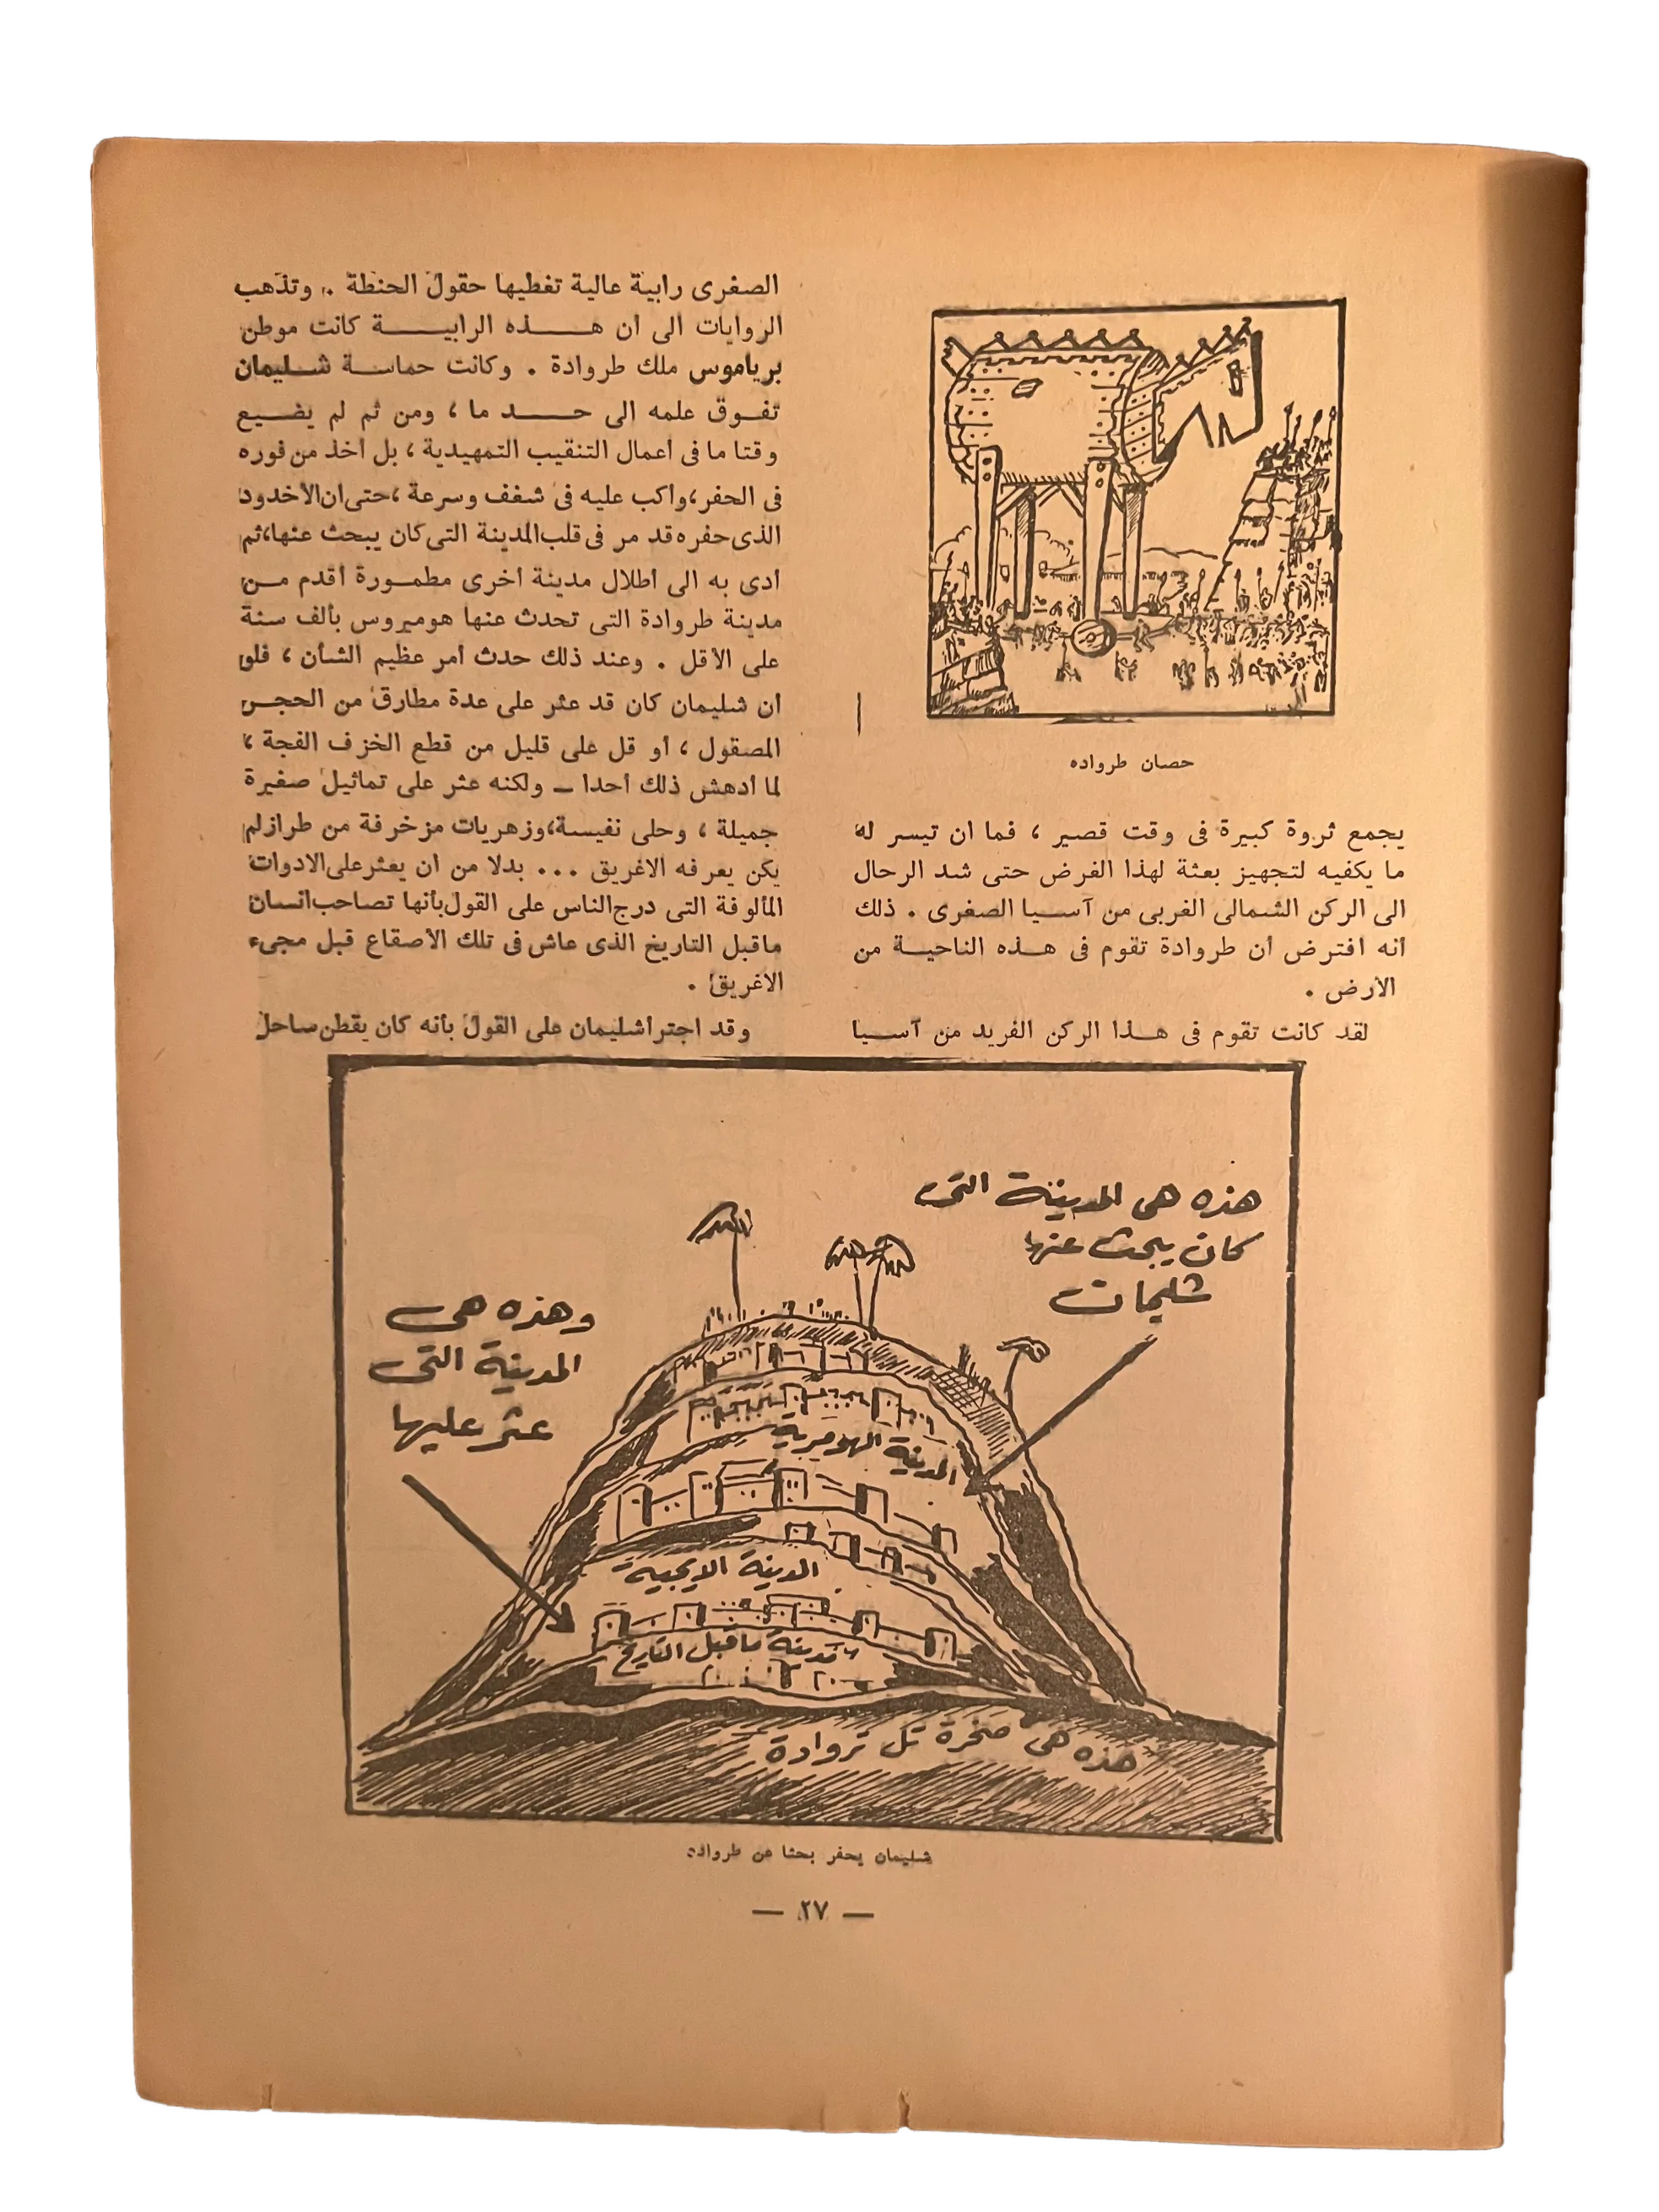 حصان طرواده
يجمع ثروة كبيرة فى وقت قصير ، فما ان تيسر له
ما يكفيه لتجهيز بعثة لهذا الغرض حتى شد الرحال
الى الركن الشمالى الغربى من آسيا الصغرى . ذلك
أنه افترض أن طروادة تقوم فى هذه الناحية من
الأرض .
لقد كانت تقوم فى هذا الركن الفريد من آسيا
الصغرى رابية عالية تغطيها حقول الحنطة . وتذهب
الروايات الى ان هذه الرابية كانت موطن
برياموس ملك طروادة . وكانت حماسة شليمان
تفوق علمه الى حد ما ، ومن ثم لم يضيع
وقتا ما فى أعمال التنقيب التمهيدية ، بل أخذ من فوره
فى الحفر ، وأكب عليه فى شغف وسرعة ، حتى ان الأخدود
الذى حفره قد مر فى قلب المدينة التى كان يبحث عنها ، ثم
أدى به الى أطلال مدينة أخرى مطمورة أقدم من
مدينة طروادة التى تحدث عنها هوميروس بألف سنة
على الأقل . وعند ذلك حدث أمر عظيم الشأن ، فلو
أن شليمان كان قد عثر على عدة مطارق من الحجر
المصقول ، أو قل على قليل من قطع الخزف الفجة ،
لما أدهش ذلك أحدا – ولكنه عثر على تماثيل صغيرة
جميلة ، وحلى نفيسة ، وزهريات مزخرفة من طراز لم
يكن يعرفه الاغريق ... بدلا من ان يعثر على الادوات
المألوفة التى درج الناس على القول بأنها تصاحب انسان
ماقبل التاريخ الذى عاش فى تلك الأصقاع قبل مجىء
الاغريق .
وقد اجترأ شليمان على القول بأنه كان يقطن ساحل
هذه هى المدينة التى
كان يبحث عنها
شليمان
وهذه هى
المدينة التى
عثر عليها
المدينة الهومرية
المدينة الايجية
مدينة ما قبل التاريخ
هذه هى صخرة تل تروادة
شليمان يحفر بحثا عن طرواده
— ٢٧ —